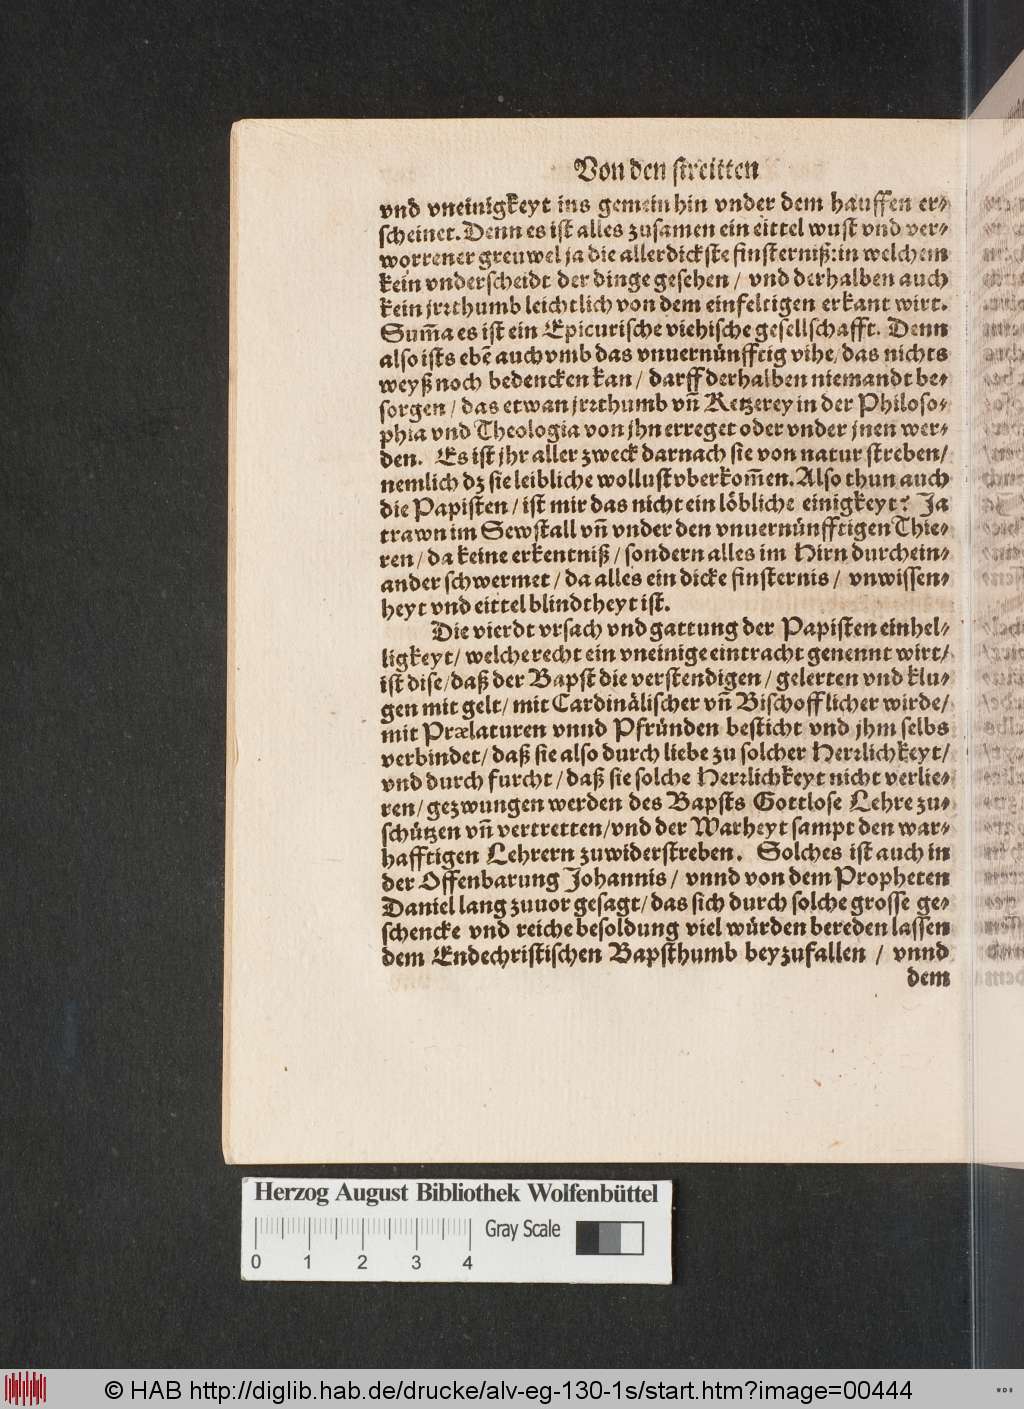 Von den ſtreitten
vnd vneinigkeyt ins gemein hin vnder dem hauffen er⸗
ſcheinet. Denn es iſt alles zuſamen ein eittel wuſt vnd ver⸗
worrener greuwel ja die allerdickſte finſterniß: in welchem
kein vnderſcheidt der dinge geſehen / vnd derhalben auch
kein jrꝛthumb leichtlich von dem einfeltigen erkant wirt.
Sum̃a es iſt ein Epicuriſche viehiſche geſellſchafft. Denn
alſo iſts ebẽ auch vmb das vnuernünfftig vihe / das nichts
weyß noch bedencken kan / darff derhalben niemandt be⸗
ſorgen / das etwan jrꝛthumb vñ Ketzerey in der Philoſo⸗
phia vnd Theologia von jhn erreget oder vnder jnen wer⸗
den. Es iſt jhr aller zweck darnach ſie von natur ſtreben /
nemlich dz ſie leibliche wolluſt vberkom̃en. Alſo thun auch
die Papiſten / iſt mir das nicht ein löbliche einigkeyt? Ja
trawn im Sewſtall vñ vnder den vnuernünfftigen Thie⸗
ren / da keine erkentniß / ſondern alles im Hirn durchein⸗
ander ſchwermet / da alles ein dicke finſternis / vnwiſſen⸗
heyt vnd eittel blindtheyt iſt.
Die vierdt vrſach vnd gattung der Papiſten einhel⸗
ligkeyt / welche recht ein vneinige eintracht genennt wirt /
iſt diſe / daß der Bapſt die verſtendigen / gelerten vnd klu⸗
gen mit gelt / mit Cardinäliſcher vñ Biſchofflicher wirde /
mit Prælaturen vnnd Pfründen beſticht vnd jhm ſelbs
verbindet / daß ſie alſo durch liebe zu ſolcher Herꝛlichkeyt /
vnd durch furcht / daß ſie ſolche Herꝛlichkeyt nicht verlie⸗
ren / gezwungen werden des Bapſts Gottloſe Lehre zu⸗
ſchützen vñ vertretten / vnd der Warheyt ſampt den war⸗
hafftigen Lehrern zuwiderſtreben. Solches iſt auch in
der Offenbarung Johannis / vnnd von dem Propheten
Daniel lang zuuor geſagt / das ſich durch ſolche groſſe ge⸗
ſchencke vnd reiche beſoldung viel würden bereden laſſen
dem Endechriſtiſchen Bapſthumb beyzufallen / vnnd
dem
Herzog August Bibliothek Wolfenbüttel
Gray Scale
0 1 2 3 4
© HAB http://diglib.hab.de/drucke/alv-eg-130-1s/start.htm?image=00444